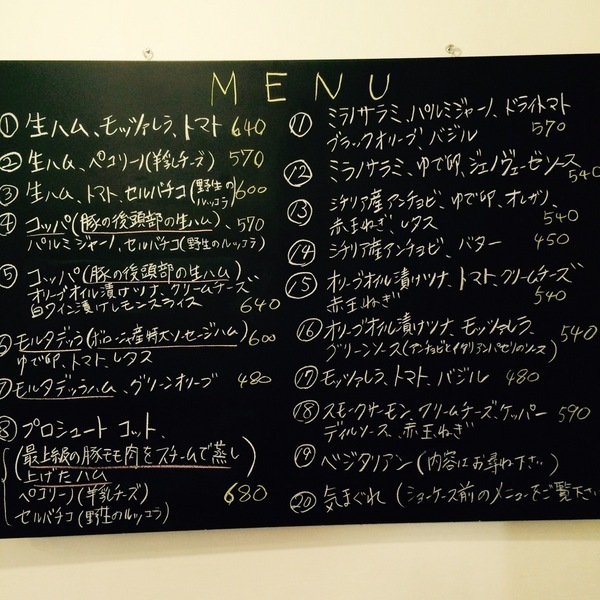 MENU
① 生ハム、モッツァレラ、トマト 640
② 生ハム、ペコリーノ(羊乳チーズ) 570
③ 生ハム、トマト、セルバチコ(野生のルッコラ) 600
④ コッパ(豚の後頭部の生ハム)、570
パルミジャーノ、セルバチコ(野生のルッコラ)
⑤ コッパ(豚の後頭部の生ハム)、
オリーブオイル漬けツナ、クリームチーズ
白ワイン漬けレモンスライス 640
⑥ モルタデッラ(ボローニャ産特大ソーセージハム) 600
ゆで卵、トマト、レタス
⑦ モルタデッラハム、グリーンオリーブ 480
⑧ プロシュート コット、
(最上級の豚モモ肉をスチームで蒸し
上げたハム
ペコリーノ(羊乳チーズ) 680
セルバチコ(野生のルッコラ)
⑪ ミラノサラミ、パルミジャーノ、ドライトマト
ブラックオリーブ、バジル 570
⑫ ミラノサラミ、ゆで卵、ジェノヴェーゼソース 540
⑬ シチリア産アンチョビ、ゆで卵、オレガノ、
赤玉ねぎ、レタス 540
⑭ シチリア産アンチョビ、バター 450
⑮ オリーブオイル漬けツナ、トマト、クリームチーズ
赤玉ねぎ 540
⑯ オリーブオイル漬けツナ、モッツァレラ、540
グリーンソース(アンチョビとイタリアンパセリのソース)
⑰ モッツァレラ、トマト、バジル 480
⑱ スモークサーモン、クリームチーズ、ケッパー 590
ディルソース、赤玉ねぎ
⑲ ベジタリアン(内容はお尋ね下さい)
⑳ 気まぐれ(ショーケース前のメニューをご覧下さい